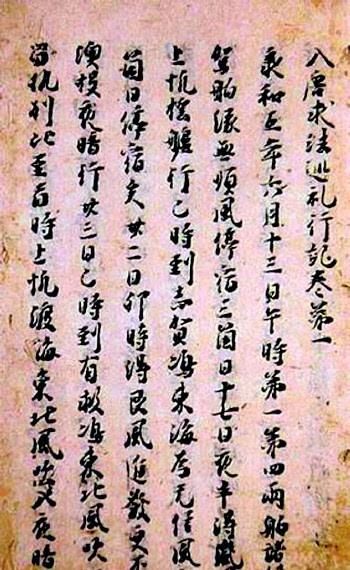 入唐求法巡礼行記卷第一
承和五年六月十三日午時第一第四兩舶諸
駕舶縁無順風停宿三箇日十七日夜半得嵐
上帆搖艫行巳時到志賀嶋東海為无信風
箇日停宿矣廿二日卯時得艮風進發更不
澳投夜暗行廿三日巳時到有救嶋東北風吹
留執別比至酉時上帆渡海東北風吹入夜暗